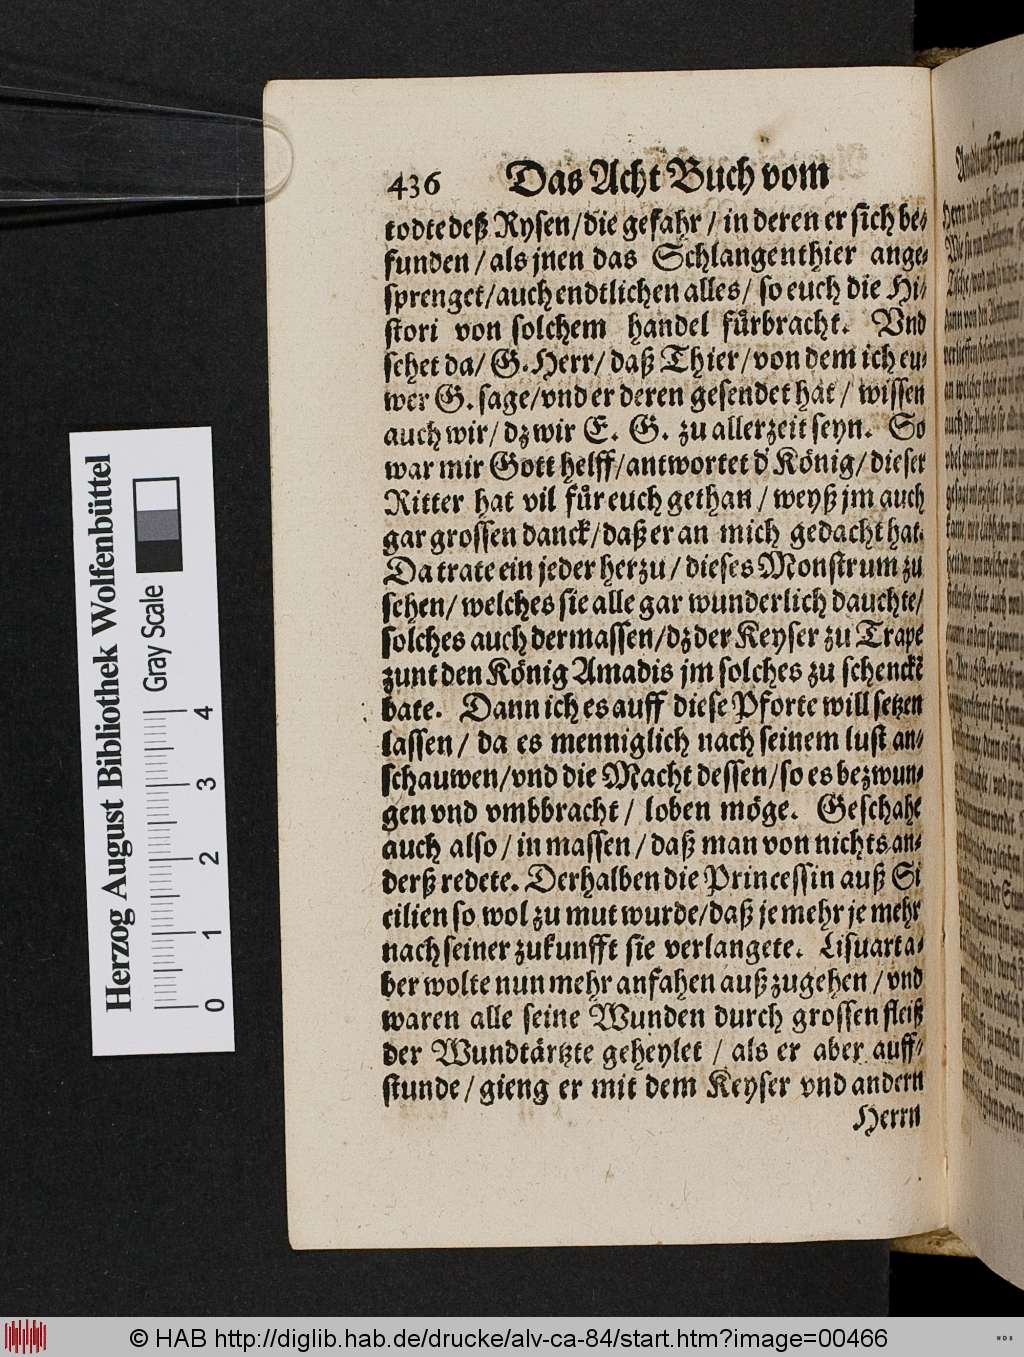 436 Das Acht Buch vom
todte deß Rysen/die gefahr / in deren er sich be⸗
funden / als jnen das Schlangenthier ange⸗
sprenget/auch endtlichen alles/ so euch die Hi⸗
stori von solchem handel fuͤrbracht. Vnd
sehet da/ G. Herr/ daß Thier/von dem ich eu⸗
wer G. sage/vnd er deren gesendet hat / wissen
auch wir/ dz wir E. G. zu allerzeit seyn. So
war mir Gott helff/antwortet d' König/dieser
Ritter hat vil fuͤr euch gethan / weyß jm auch
gar grossen danck/daß er an mich gedacht hat.
Da trate ein jeder herzu / dieses Monstrum zu
sehen/ welches sie alle gar wunderlich dauchte/
solches auch dermassen/dz der Keyser zu Trape
zunt den König Amadis jm solches zu schenckē
bate. Dann ich es auff diese Pforte will setzen
lassen / da es menniglich nach seinem lust an⸗
schauwen/vnd die Macht dessen/so es bezwun⸗
gen vnd vmbbracht / loben möge. Geschahe
auch also / in massen / daß man von nichts an⸗
derß redete. Derhalben die Princessin auß Si
cilien so wol zu mut wurde/daß je mehr je mehr
nach seiner zukunfft sie verlangete. Lisuart a⸗
ber wolte nun mehr anfahen auß zugehen / vnd
waren alle seine Wunden durch grossen fleiß
der Wundtärtzte geheylet / als er aber auff⸗
stunde / gieng er mit dem Keyser vnd andern
Herrn
Herzog August Bibliothek Wolfenbüttel
Gray Scale
0 1 2 3 4
© HAB http://diglib.hab.de/drucke/alv-ca-84/start.htm?image=00466